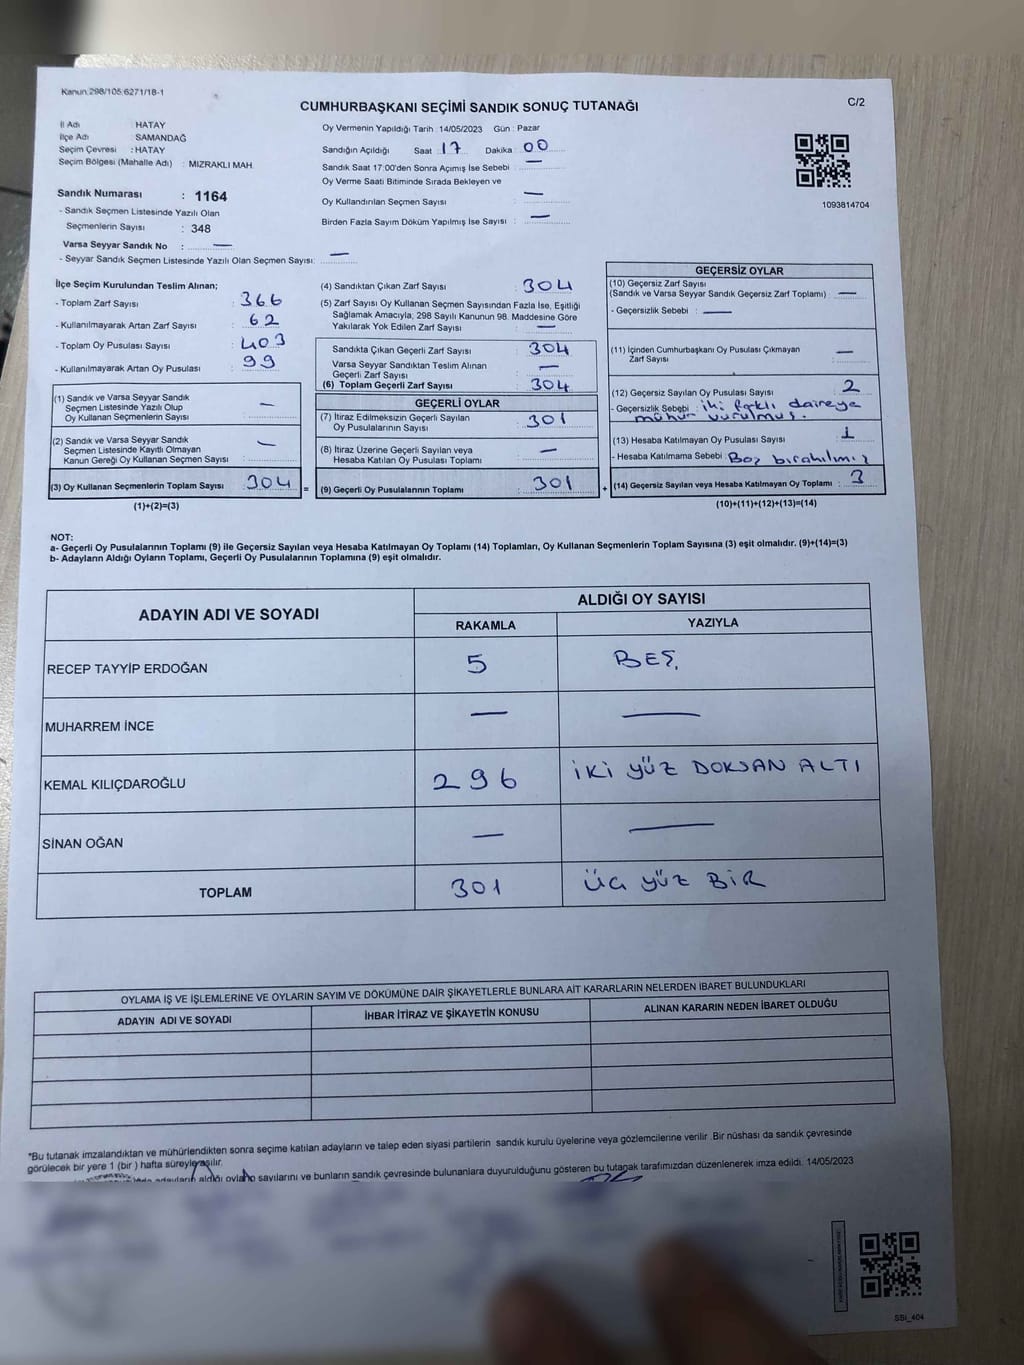 Kanun.298/105;6271/18-1
CUMHURBAŞKANI SEÇİMİ SANDIK SONUÇ TUTANAĞI
C/2
İl Adı : HATAY
İlçe Adı : SAMANDAĞ
Seçim Çevresi : HATAY
Seçim Bölgesi (Mahalle Adı) : MIZRAKLI MAH.
Sandık Numarası : 1164
- Sandık Seçmen Listesinde Yazılı Olan
Seçmenlerin Sayısı : 348
Varsa Seyyar Sandık No : —
- Seyyar Sandık Seçmen Listesinde Yazılı Olan Seçmen Sayısı: —
Oy Vermenin Yapıldığı Tarih : 14/05/2023 Gün : Pazar
Sandığın Açıldığı Saat 17 Dakika 00
Sandık Saat 17:00'den Sonra Açımış İse Sebebi : —
Oy Verme Saati Bitiminde Sırada Bekleyen ve
Oy Kullandırılan Seçmen Sayısı : —
Birden Fazla Sayım Döküm Yapılmış İse Sayısı : —
1093814704
İlçe Seçim Kurulundan Teslim Alınan;
- Toplam Zarf Sayısı : 366
- Kullanılmayarak Artan Zarf Sayısı : 62
- Toplam Oy Pusulası Sayısı : 403
- Kullanılmayarak Artan Oy Pusulası : 99
(1) Sandık ve Varsa Seyyar Sandık
Seçmen Listesinde Yazılı Olup
Oy Kullanan Seçmenlerin Sayısı : —
(2) Sandık ve Varsa Seyyar Sandık
Seçmen Listesinde Kayıtlı Olmayan
Kanun Gereği Oy Kullanan Seçmen Sayısı : —
(3) Oy Kullanan Seçmenlerin Toplam Sayısı : 304 =
(1)+(2)=(3)
(4) Sandıktan Çıkan Zarf Sayısı : 304
(5) Zarf Sayısı Oy Kullanan Seçmen Sayısından Fazla İse, Eşitliği
Sağlamak Amacıyla; 298 Sayılı Kanunun 98. Maddesine Göre
Yakılarak Yok Edilen Zarf Sayısı : —
Sandıkta Çıkan Geçerli Zarf Sayısı : 304
Varsa Seyyar Sandıktan Teslim Alınan
Geçerli Zarf Sayısı : —
(6) Toplam Geçerli Zarf Sayısı : 304
GEÇERLİ OYLAR
(7) İtiraz Edilmeksizin Geçerli Sayılan
Oy Pusulalarının Sayısı : 301
(8) İtiraz Üzerine Geçerli Sayılan veya
Hesaba Katılan Oy Pusulası Toplamı : —
(9) Geçerli Oy Pusulalarının Toplamı : 301 +
GEÇERSİZ OYLAR
(10) Geçersiz Zarf Sayısı
(Sandık ve Varsa Seyyar Sandık Geçersiz Zarf Toplamı) : —
- Geçersizlik Sebebi : —
(11) İçinden Cumhurbaşkanı Oy Pusulası Çıkmayan
Zarf Sayısı : —
(12) Geçersiz Sayılan Oy Pusulası Sayısı : 2
- Geçersizlik Sebebi : iki farklı daireye
mühür vurulmuş.
(13) Hesaba Katılmayan Oy Pusulası Sayısı : 1
- Hesaba Katılmama Sebebi : Boş bırakılmış
(14) Geçersiz Sayılan veya Hesaba Katılmayan Oy Toplamı : 3
(10)+(11)+(12)+(13)=(14)
NOT:
a- Geçerli Oy Pusulalarının Toplamı (9) ile Geçersiz Sayılan veya Hesaba Katılmayan Oy Toplamı (14) Toplamları, Oy Kullanan Seçmenlerin Toplam Sayısına (3) eşit olmalıdır. (9)+(14)=(3)
b- Adayların Aldığı Oyların Toplamı, Geçerli Oy Pusulalarının Toplamına (9) eşit olmalıdır.
ADAYIN ADI VE SOYADI
ALDIĞI OY SAYISI
RAKAMLA YAZIYLA
RECEP TAYYİP ERDOĞAN 5 BEŞ
MUHARREM İNCE — —
KEMAL KILIÇDAROĞLU 296 İKİ YÜZ DOKSAN ALTI
SİNAN OĞAN — —
TOPLAM 301 ÜÇ YÜZ BİR
OYLAMA İŞ VE İŞLEMLERİNE VE OYLARIN SAYIM VE DÖKÜMÜNE DAİR ŞİKAYETLERLE BUNLARA AİT KARARLARIN NELERDEN İBARET BULUNDUKLARI
ADAYIN ADI VE SOYADI İHBAR İTİRAZ VE ŞİKAYETİN KONUSU ALINAN KARARIN NEDEN İBARET OLDUĞU
*Bu tutanak imzalandıktan ve mühürlendikten sonra seçime katılan adayların ve talep eden siyasi partilerin sandık kurulu üyelerine veya gözlemcilerine verilir .Bir nüshası da sandık çevresinde
görülecek bir yere 1 (bir ) hafta süreyle asılır.
adayların aldığı oyların sayılarını ve bunların sandık çevresinde bulunanlara duyurulduğunu gösteren bu tutanak tarafımızdan düzenlenerek imza edildi. 14/05/2023
SBI_404